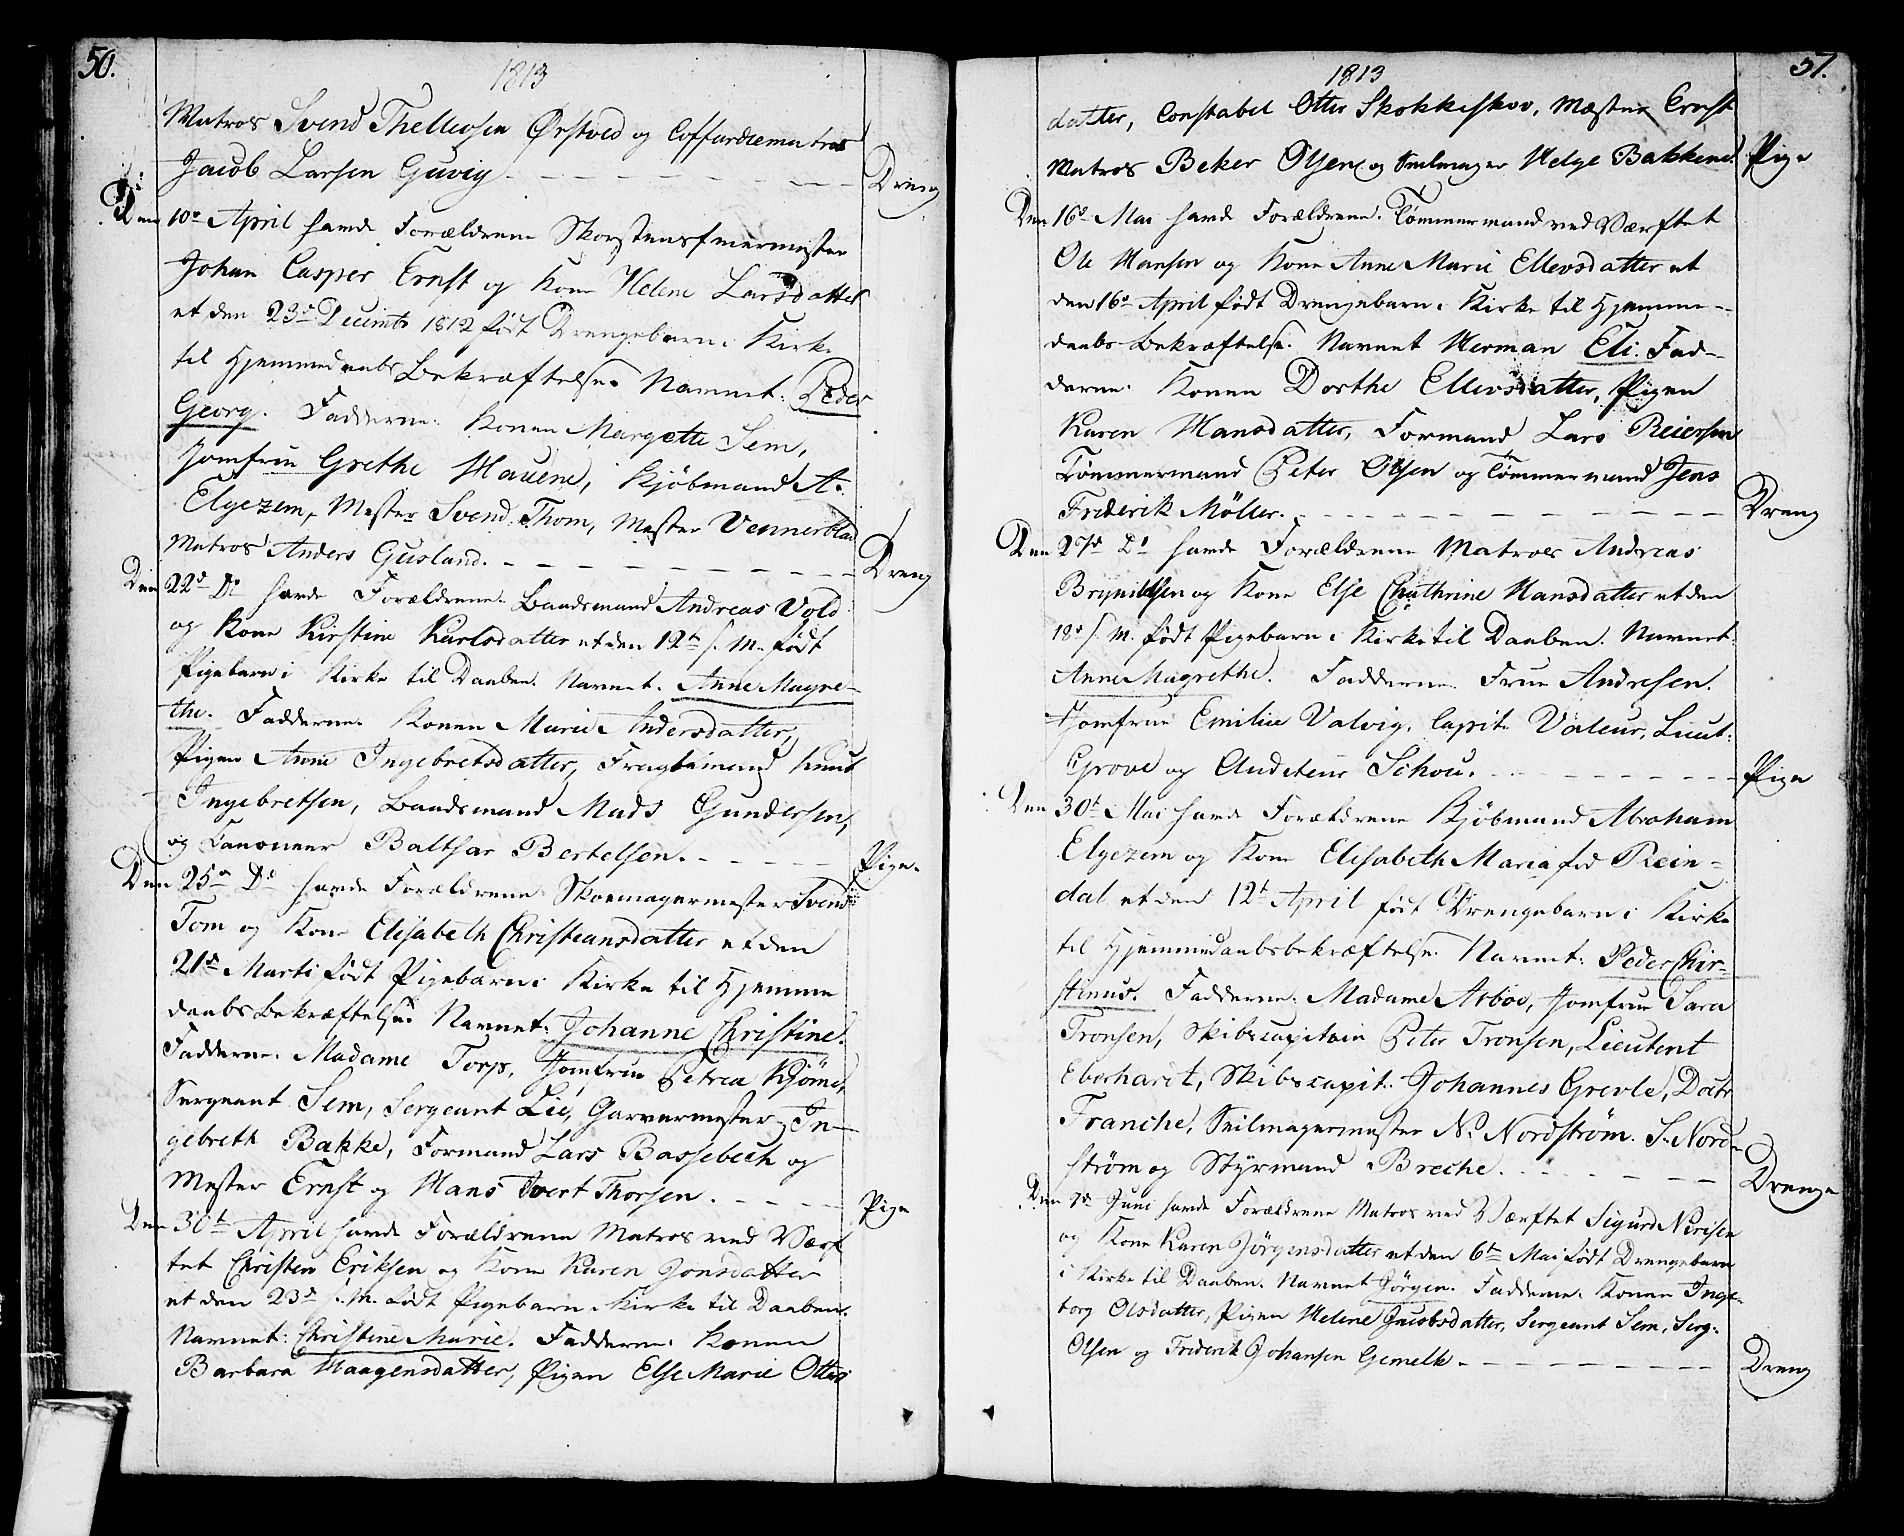 50.
1813
Matros Svend Thellevsen Ørstved og Coffardiematros
Jacob Larsen Guvig - - - Dreng
Den 10de April havde Forældrene Skorstensfeiermester
Johan Casper Ernst og Kone Helene Larsdatter
et den 23de Decimb 1812 født Drengebarn i Kirke
til Hjemmedaabs Bekræftelse. Navnet: Peder
Georg. Fadderne. Konen Margrette Sem,
Jomfrue Grethe Hauene, Kjöbmand A.
Elgezem, Mester Svend Thom, Mester Vennerblad
Matros Anders Gusland. - - - Dreng
Den 22de Do havde Forældrene. Baadsmand Andreas Vold
og Kone Kirstine Karlsdatter et den 12te s. M. født
Pigebarn i Kirke til Daaben. Navnet. Anne Magre-
the. Fadderne. Konen Marie Andersdatter,
Pigen Anne Ingebretsdatter, Fragtemand Knut
Ingebretsen, Baadsmand Mads Gundersen,
og Canoneer Baltsar Bertelsen. - - - Pige.
Den 25de Do havde Forældrene Skoemagermester Svend
Tom og Kone Elisabeth Christiansdatter et den
21de Marti født Pigebarn i Kirke til Hjemme
daabs Bekræftelse. Navnet: Johanne Christine.
Fadderne. Madame Torp, Jomfrue Petrea Kjöme,
Sergeant Sem, Sergeant Lie, Garvermester In-
gebreth Bakke, Formand Lars Bassebech og
Mester Ernst og Hans Ivert Thorsen. - - - Pige
Den 30te April havde Forældrene Matros ved Værf
tet Christen Eriksen og Kone Karen Jonsdatter
et den 23de s. M. født Pigebarn i Kirke til Daaben.
Navnet: Christine Marie. Fadderne: Konen
Barbara Haagensdatter, Pigen Else Marie Otter
51.
1813
datter, Constabel Otter Skokkeskov, Mæster Ernst
Matros Beker Olsen og Seilmager Helge Bakkene. Pige
Den 16de Mai havde Forældrene. Tömmermand ved Værftet
Ole Hansen og Kone Anne Marie Ellevsdatter et
den 16de April født Drengebarn i Kirke til Hjemme-
daabs Bekræftelse. Navnet Herman Eli. Fad-
derne. Konen Dorthe Ellevsdatter, Pigen
Karen Hansdatter, Formand Lars Reiersen
Tömmermand Peter Olsen og Tömmermand Jens
Friderik Möller. - - - Dreng
Den 27de Do havde Forældrene Matros Andreas
Brynildsen og Kone Else Chathrine Hansdatter et den
18de s. M. født Pigebarn i Kirke til Daaben. Navnet:
Anne Magrethe. Fadderne. Frue Andresen.
Jomfrue Emilie Valvig, Capit. Valeur, Lieut:
Grove og Auditeur Schou. - - - Pige
Den 30te Mai havde Forældrene Kjöbmand Abraham
Elgezem og Kone Elisabeth Maria fød Rein-
dal et den 12te April født Drengebarn i Kirke
til Hjemmedaabsbekræftelse. Navnet: Peder Chir-
stinus. Fadderne. Madame Arboe, Jomfrue Sara
Tronsen, Skibscapitain Peter Tronsen, Lieutent
Eberharct, Skibscapit. Johannes Grevle, Doctr
Franche, Seilmagermester N. Nordström. S. Nord-
ström og Styrmand Breche. - - - Drenge
Den 7de Juni havde Forældrene Matros ved Værftet Sigurd Nerisen
og Kone Karen Jörgensdatter et den 6te Mai født Drengebarn
i Kirke til Daaben. Navnet Jörgen. Fadderne. Konen Inge-
borg Olsdatter, Pigen Helene Jacobsdatter, Sergeant Sem, Serg.
Olsen og Friderik Johansen Gemelle. - - - Dreng